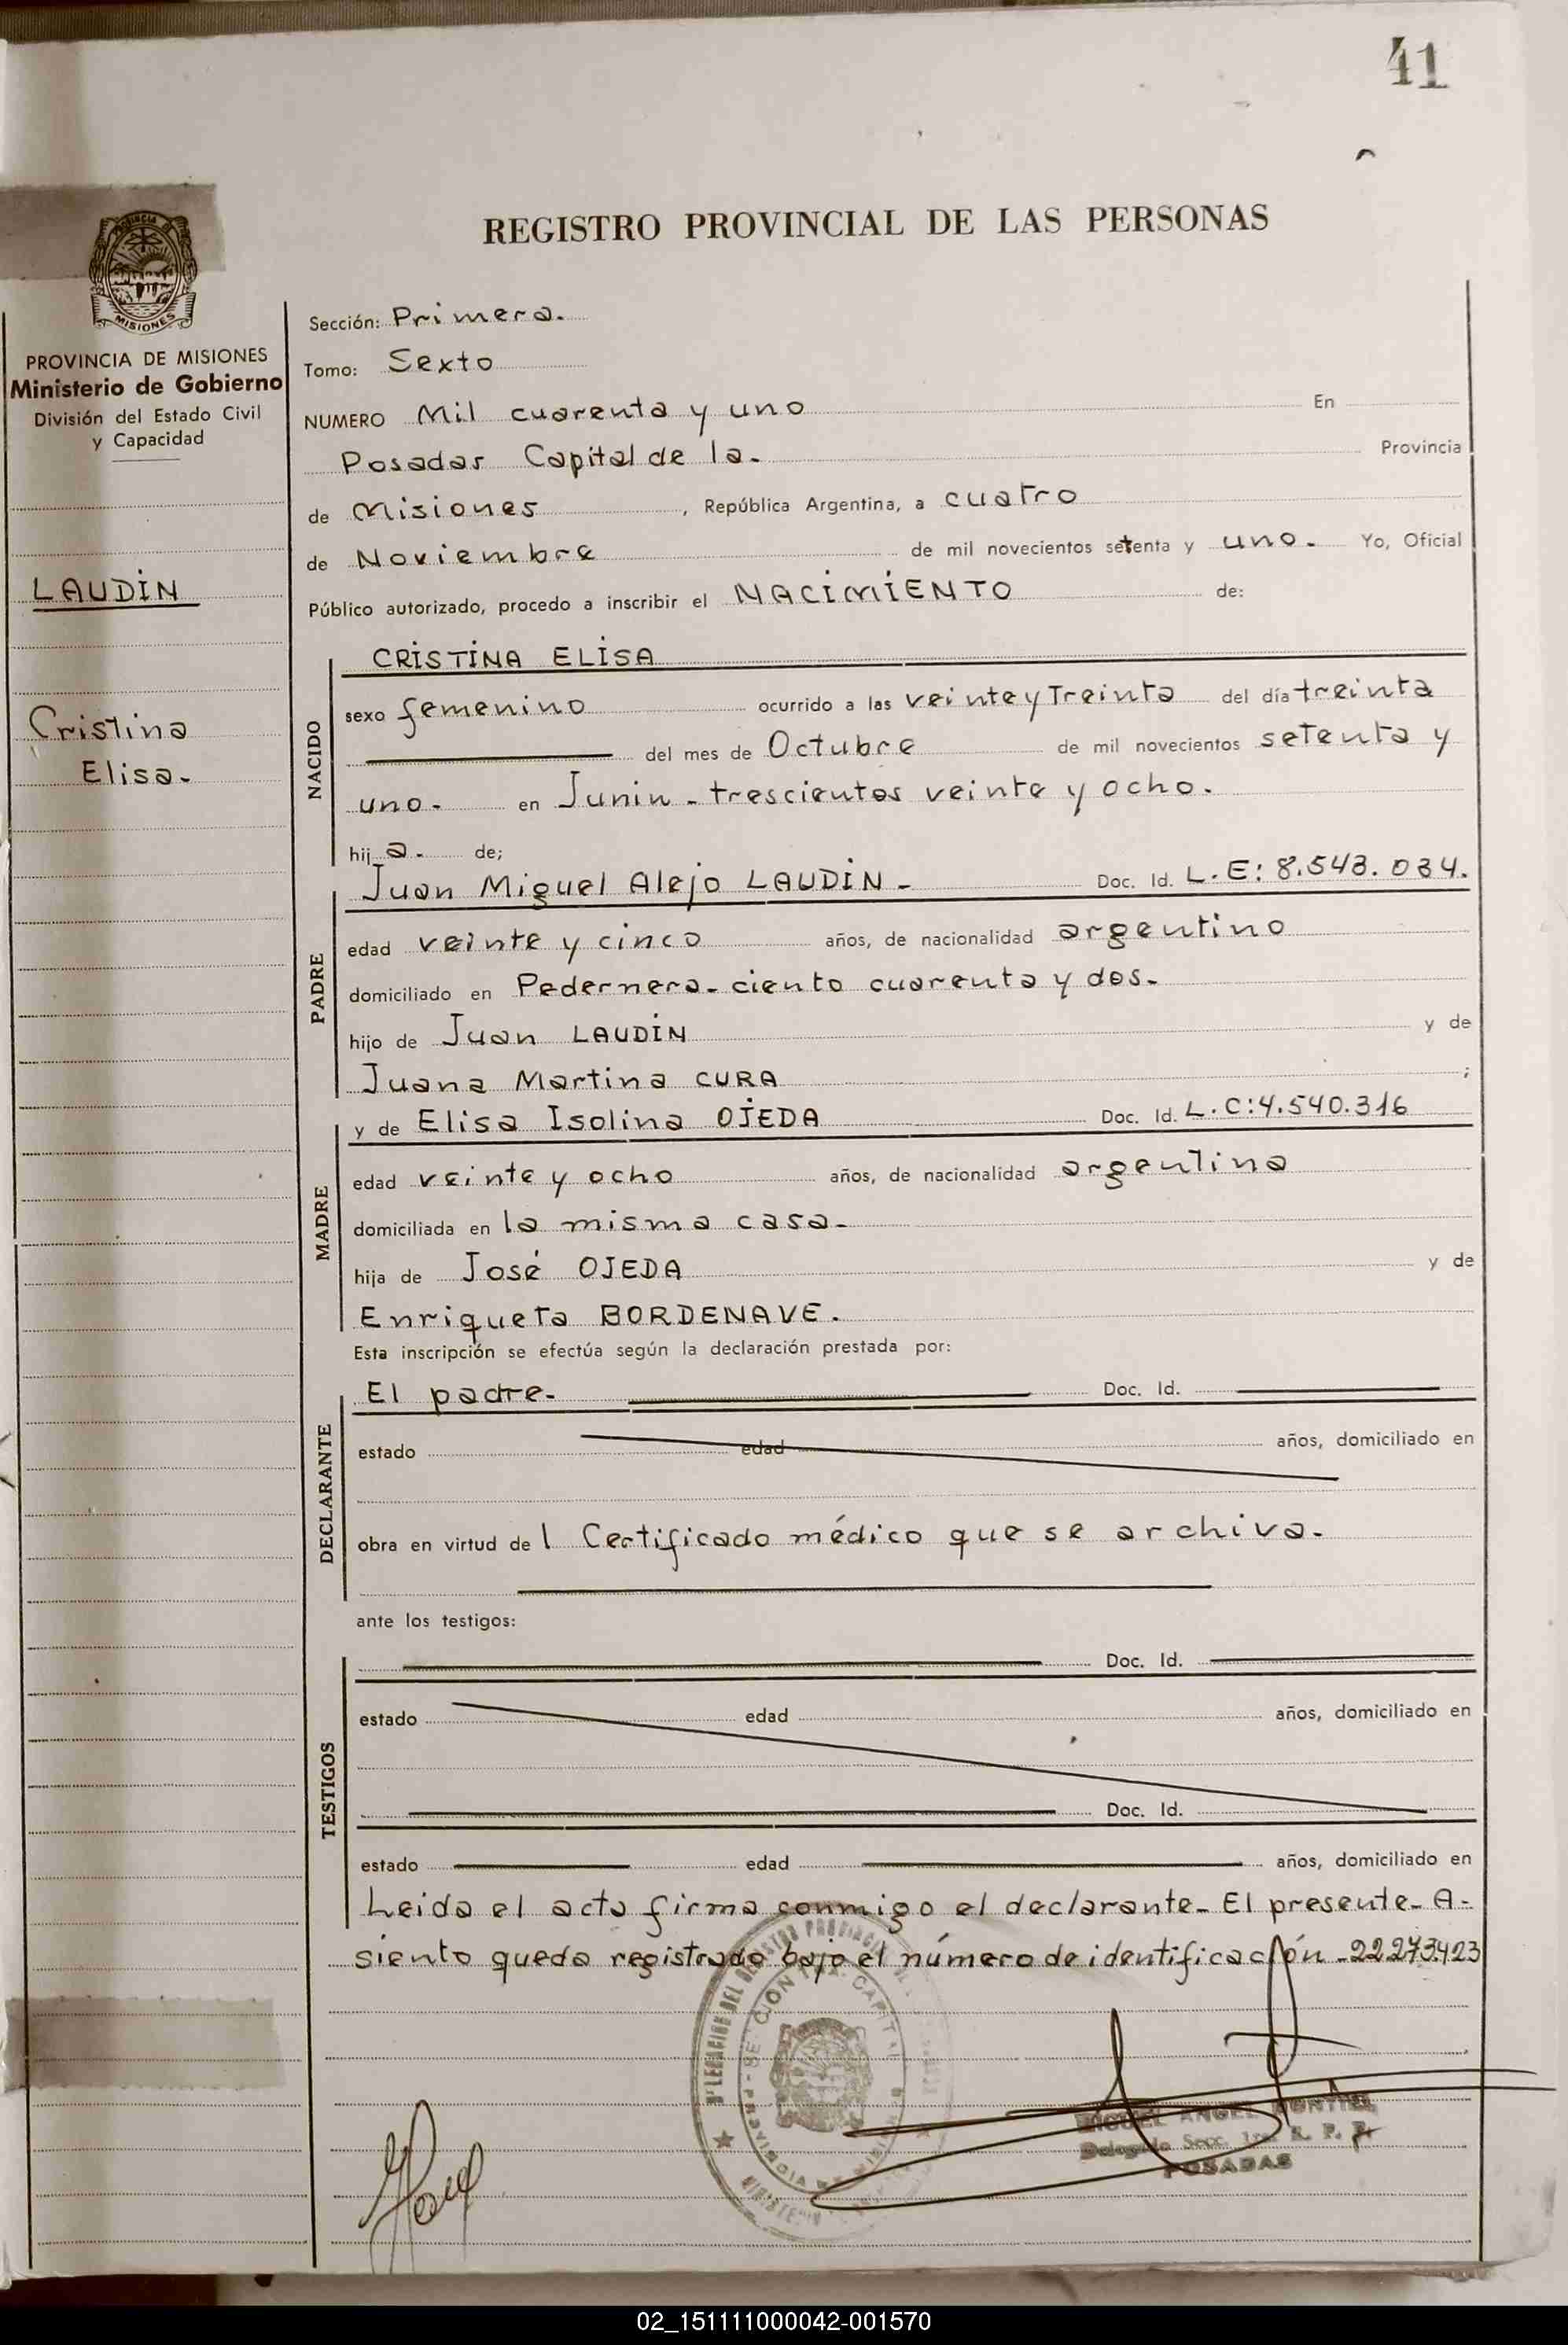 41
REGISTRO PROVINCIAL DE LAS PERSONAS
MISIONES
PROVINCIA DE MISIONES
Ministerio de Gobierno
División del Estado Civil
y Capacidad
LAUDIN
Cristina
Elisa.
Sección: Primera.
Tomo: Sexto
NUMERO Mil cuarenta y uno En
Posadas Capital de la. Provincia
de Misiones, República Argentina, a cuatro
de Noviembre de mil novecientos setenta y uno. Yo, Oficial
Público autorizado, procedo a inscribir el NACIMIENTO de:
NACIDO
CRISTINA ELISA
sexo femenino ocurrido a las veinte y Treinta del día treinta
del mes de Octubre de mil novecientos setenta y
uno. en Junin - trescientos veinte y ocho.
hij a. de;
PADRE
Juan Miguel Alejo LAUDIN - Doc. Id. L.E: 8.543.034.
edad veinte y cinco años, de nacionalidad argentino
domiciliado en Pedernera - ciento cuarenta y dos.
hijo de Juan LAUDIN y de
Juana Martina CURA ;
MADRE
y de Elisa Isolina OJEDA Doc. Id. L.C:4.540.316
edad veinte y ocho años, de nacionalidad argentina
domiciliada en la misma casa.
hija de José OJEDA y de
Enriqueta BORDENAVE.
Esta inscripción se efectúa según la declaración prestada por:
DECLARANTE
El padre. Doc. Id.
estado edad años, domiciliado en
obra en virtud de l Certificado médico que se archiva.
ante los testigos:
TESTIGOS
Doc. Id.
estado edad años, domiciliado en
Doc. Id.
estado edad años, domiciliado en
Leida el acta firma conmigo el declarante. El presente. A-
siento queda registrado bajo el número de identificación - 22.273.423
MIGUEL ANGEL
Delegado Secc. 1ra R. P. P.
POSADAS
02_151111000042-001570